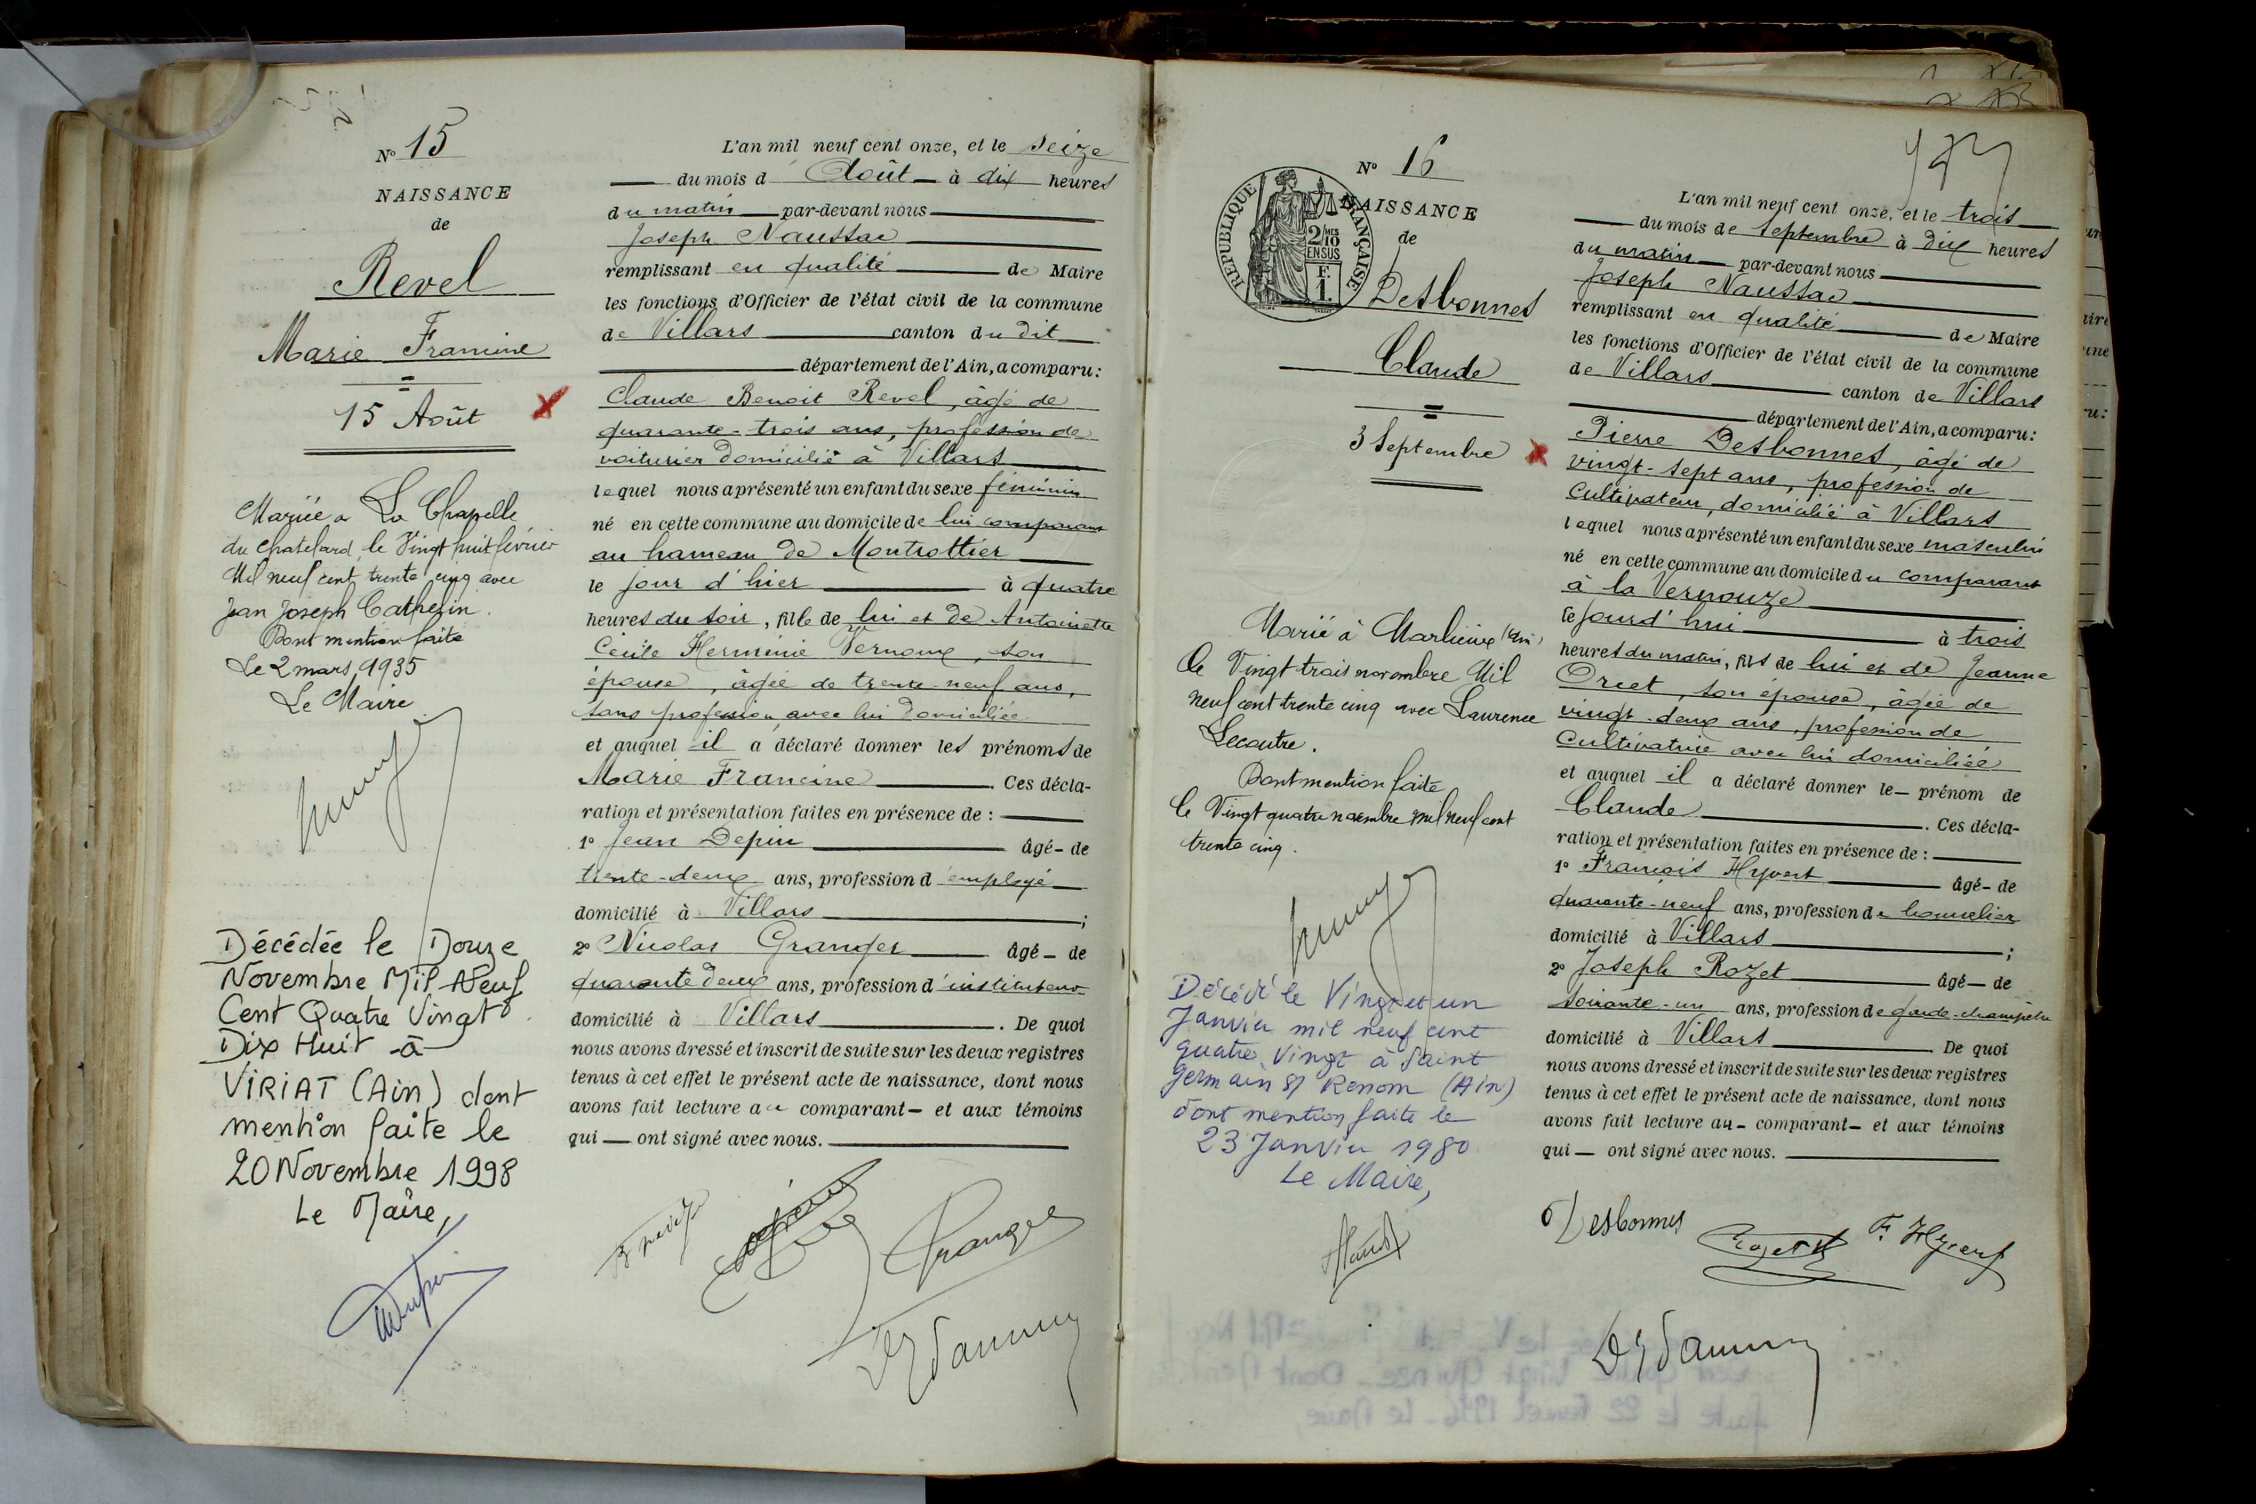 N° 15
NAISSANCE
de
Revel
Marie Francine
15 Août
Mariée à La Chapelle
du Chatelard, le Vingt huit février
Mil neuf cent trente cinq avec
Jean Joseph Catherin.
Dont mention faite
Le 2 mars 1935
Le Maire
Décédée le Douze
Novembre Mil Neuf
Cent Quatre Vingt
Dix Huit à
VIRIAT (Ain) dont
mention faite le
20 Novembre 1998
Le Maire,
L'an mil neuf cent onze, et le seize
du mois d'Août à dix heures
du matin par-devant nous
Joseph Naussac
remplissant en qualité de Maire
les fonctions d'Officier de l'état civil de la commune
de Villars canton du dit
département de l'Ain, a comparu:
Claude Benoit Revel, âgé de
quarante-trois ans, profession de
voiturier domicilié à Villars
lequel nous a présenté un enfant du sexe féminin
né en cette commune au domicile de lui comparant
au hameau de Montrottier
le jour d'hier à quatre
heures du soir, fille de lui et de Antoinette
Cécile Herminie Vernoux, son
épouse, âgée de trente-neuf ans,
sans profession, avec lui domiciliée
et auquel il a déclaré donner les prénoms de
Marie Francine. Ces décla-
ration et présentation faites en présence de :
1° Jean Depin âgé de
trente-deux ans, profession d'employé
domicilié à Villars ;
2° Nicolas Granger âgé de
quarante deux ans, profession d'instituteur
domicilié à Villars. De quoi
nous avons dressé et inscrit de suite sur les deux registres
tenus à cet effet le présent acte de naissance, dont nous
avons fait lecture au comparant et aux témoins
qui ont signé avec nous.
Granger
N° 16
NAISSANCE
de
REPUBLIQUE FRANÇAISE
2/10 EN SUS
F.
1.
Desbonnes
Claude
3 Septembre
Marié à Marlieux (Ain)
le Vingt trois novembre Mil
neuf cent trente cinq avec Laurence
Lecoutre.
Dont mention faite
le Vingt quatre novembre mil neuf cent
trente cinq.
Décédé le Vingt et un
Janvier mil neuf cent
quatre Vingt à Saint
Germain s/ Renom (Ain)
dont mention faite le
23 Janvier 1980
Le Maire,
L'an mil neuf cent onze, et le trois
du mois de Septembre à dix heures
du matin par-devant nous
Joseph Naussac
remplissant en qualité de Maire
les fonctions d'Officier de l'état civil de la commune
de Villars canton de Villars
département de l'Ain, a comparu:
Pierre Desbonnes, âgé de
vingt-sept ans, profession de
Cultivateur, domicilié à Villars
lequel nous a présenté un enfant du sexe masculin
né en cette commune au domicile du comparant
à la Vernouze
le jourd'hui à trois
heures du matin, fils de lui et de Jeanne
Orcet, son épouse, âgée de
vingt-deux ans, profession de
Cultivatrice avec lui domiciliée
et auquel il a déclaré donner le prénom de
Claude. Ces décla-
ration et présentation faites en présence de :
1° François Hyvert âgé de
quarante-neuf ans, profession de
domicilié à Villars ;
2° Joseph Rozet âgé de
soixante-un ans, profession de garde-champêtre
domicilié à Villars De quoi
nous avons dressé et inscrit de suite sur les deux registres
tenus à cet effet le présent acte de naissance, dont nous
avons fait lecture au comparant et aux témoins
qui ont signé avec nous.
Desbonnes Rozet F. Hyvert